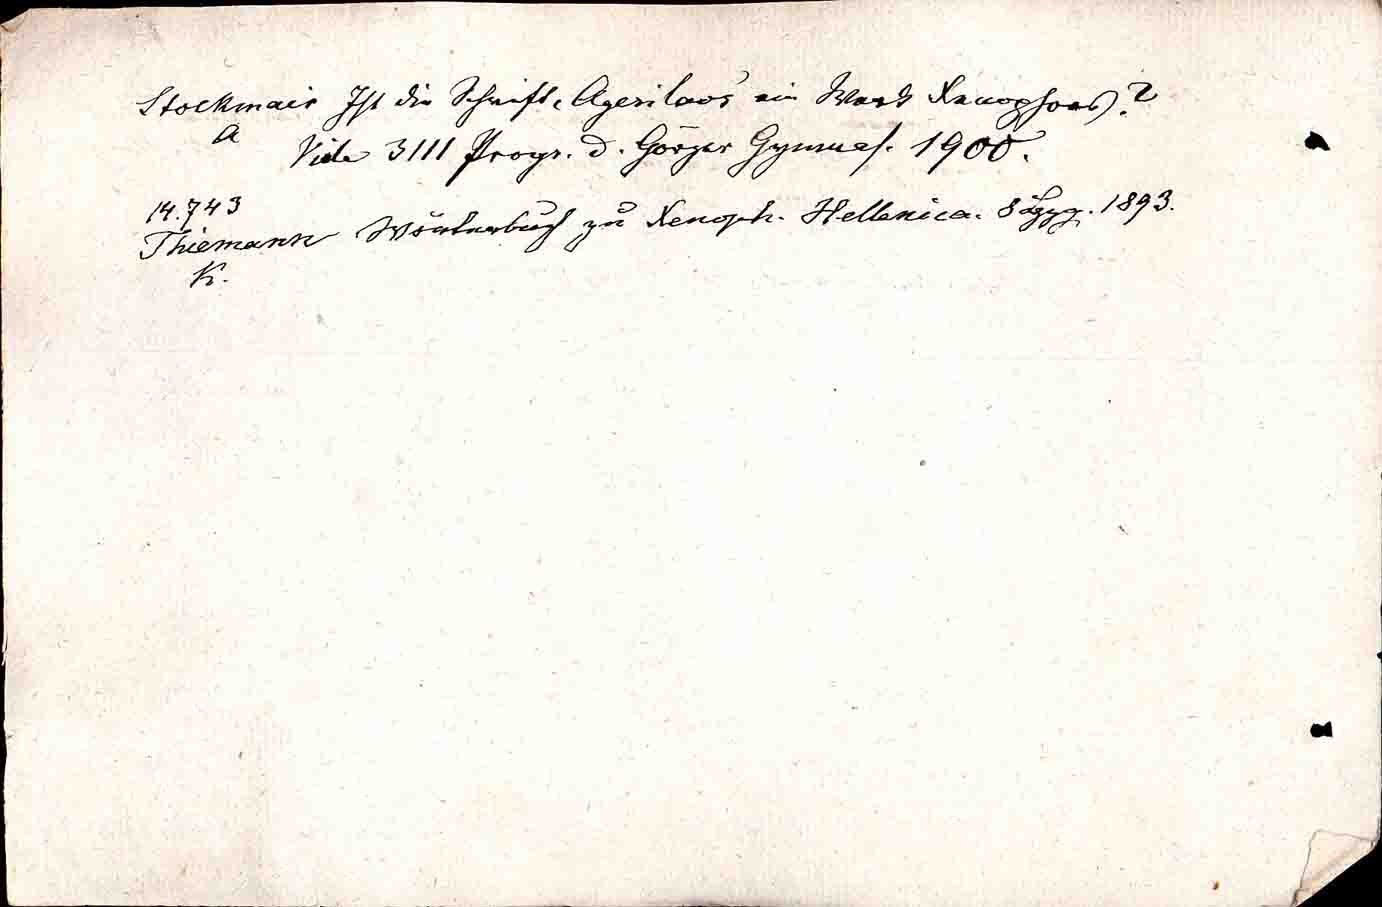 Stockmair Ist die Schrift „Agesilaos“ ein Werk Xenophons?
A
Vide 3111 Progr. d. Görzer Gymnas. 1900.
14.743
Thiemann Wörterbuch zu Xenoph. Hellenica. 8 Lpzg. 1893.
K.